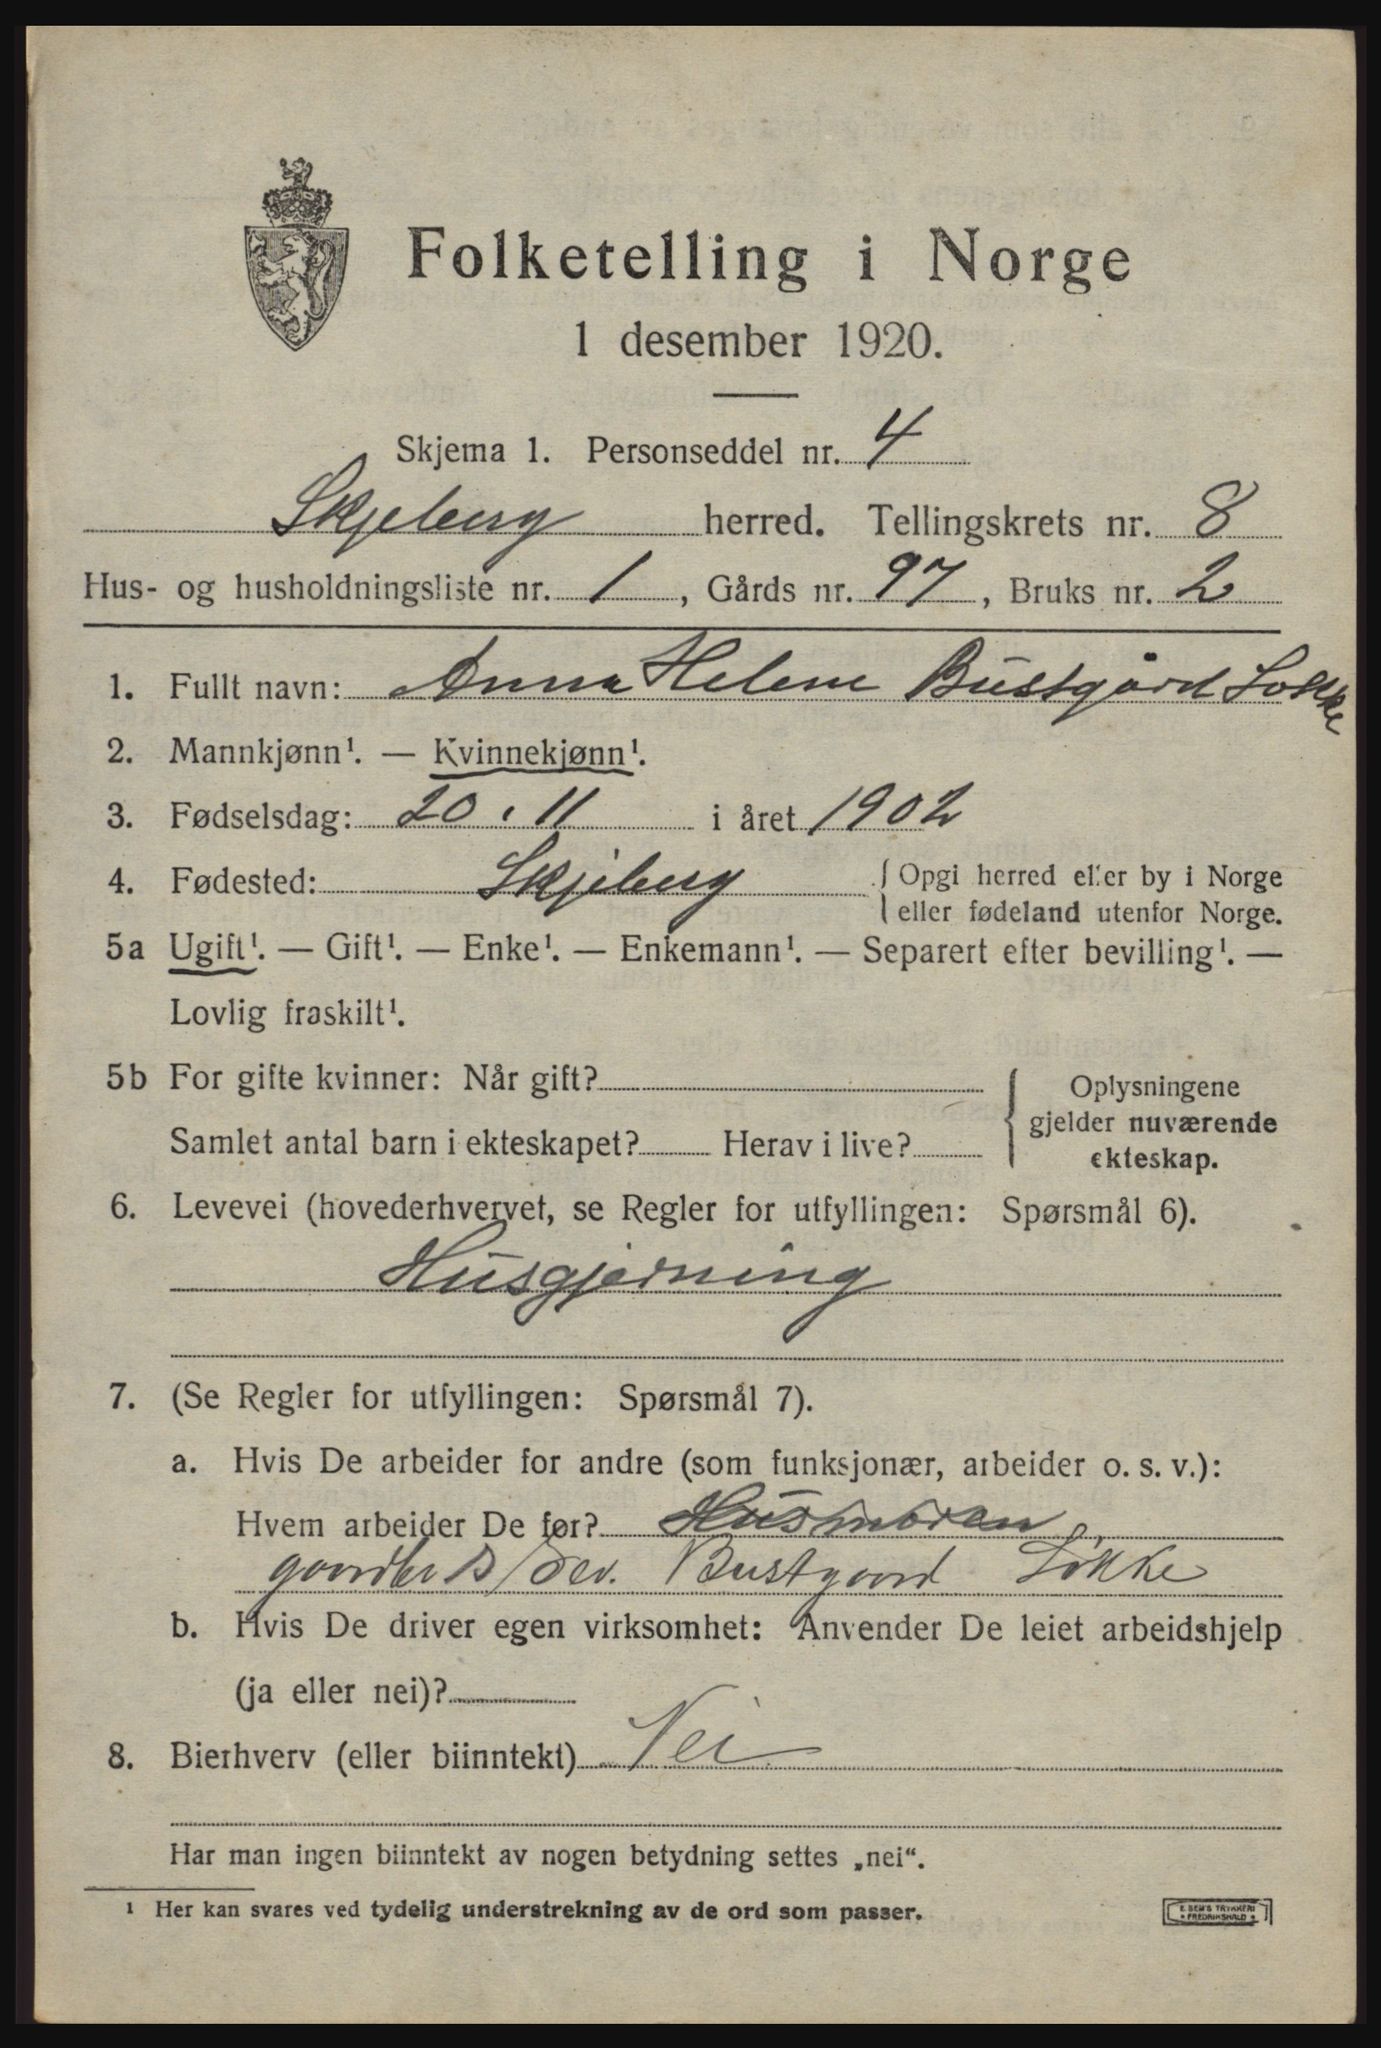 Folketelling i Norge
1 desember 1920.
Skjema 1. Personseddel nr. 4
Skjeberg herred. Tellingskrets nr. 8
Hus- og husholdningsliste nr. 1, Gårds nr. 97, Bruks nr. 2
1. Fullt navn: Anna Helene Bustgård Løkke
2. Mannkjønn¹. — Kvinnekjønn¹.
3. Fødselsdag: 20.11 i året 1902
4. Fødested: Skjeberg { Opgi herred eller by i Norge
eller fødeland utenfor Norge.
5a Ugift¹. — Gift¹. — Enke¹. — Enkemann¹. — Separert efter bevilling¹. —
Lovlig fraskilt¹.
5b For gifte kvinner: Når gift? { Oplysningene
gjelder nuværende
Samlet antal barn i ekteskapet? Herav i live? ekteskap.
6. Levevei (hovederhvervet, se Regler for utfyllingen: Spørsmål 6).
Husgjerning
7. (Se Regler for utfyllingen: Spørsmål 7).
a. Hvis De arbeider for andre (som funksjonær, arbeider o. s. v.):
Hvem arbeider De for? Husmoren
Bustgaard Løkke
b. Hvis De driver egen virksomhet: Anvender De leiet arbeidshjelp
(ja eller nei)?
8. Bierhverv (eller biinntekt) Nei
Har man ingen biinntekt av nogen betydning settes „nei“.
¹ Her kan svares ved tydelig understrekning av de ord som passer.
E. SEM'S TRYKKERI
FREDRIKSHALD